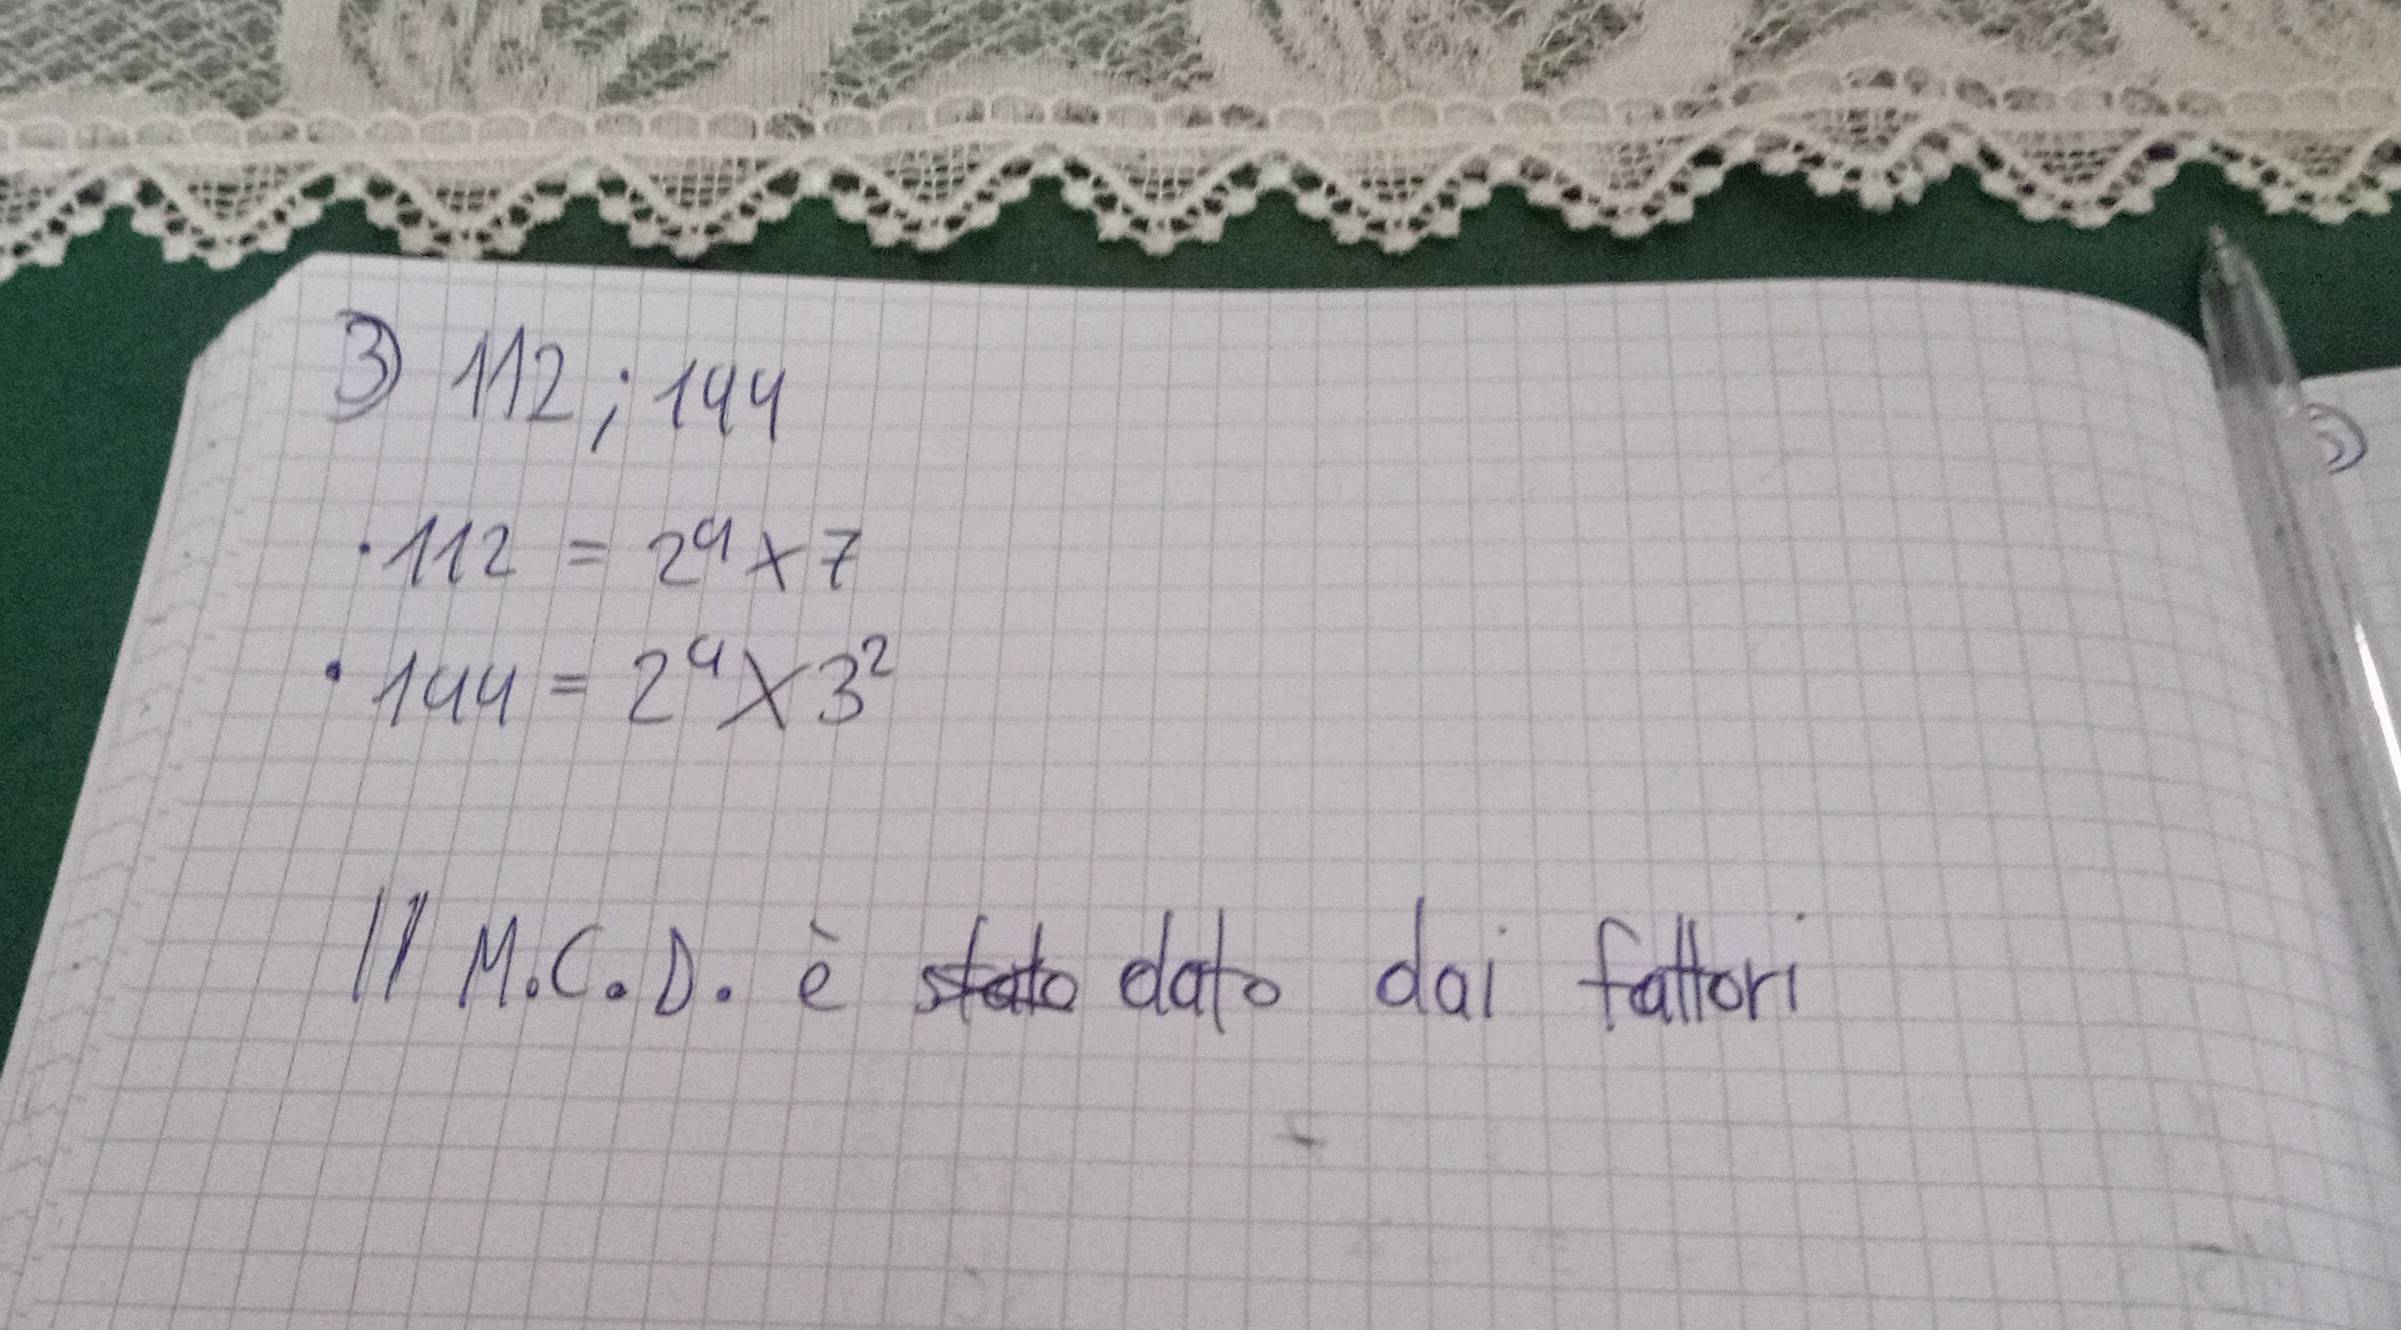 3) 112; 144
·112 = 2⁴ x 7
· 144 = 2⁴ x 3²
Il M.C.D. è stato dato dai fattori